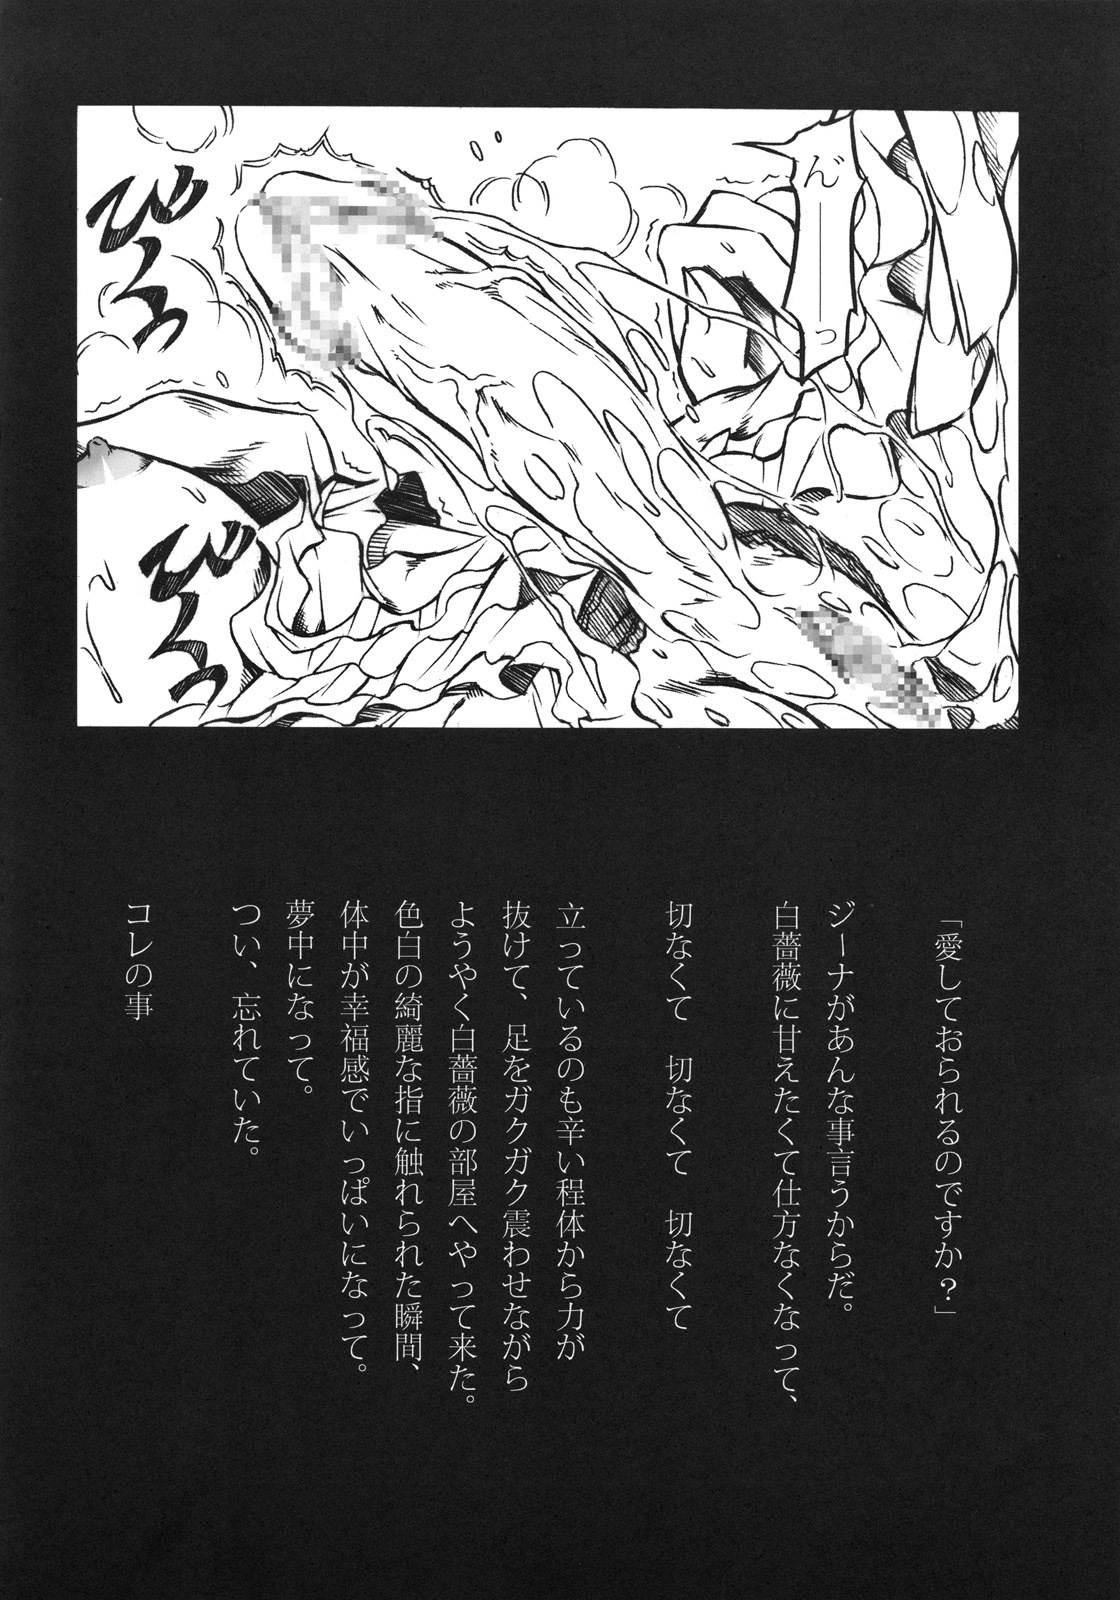 ん──っ
びくっ
びくっ
「愛しておられるのですか？」
ジーナがあんな事言うからだ。
白薔薇に甘えたくて仕方なくなって、
切なくて　切なくて　切なくて
立っているのも辛い程体から力が
抜けて、足をガクガク震わせながら
ようやく白薔薇の部屋へやって来た。
色白の綺麗な指に触れられた瞬間、
体中が幸福感でいっぱいになって。
夢中になって。
つい、忘れていた。
コレの事